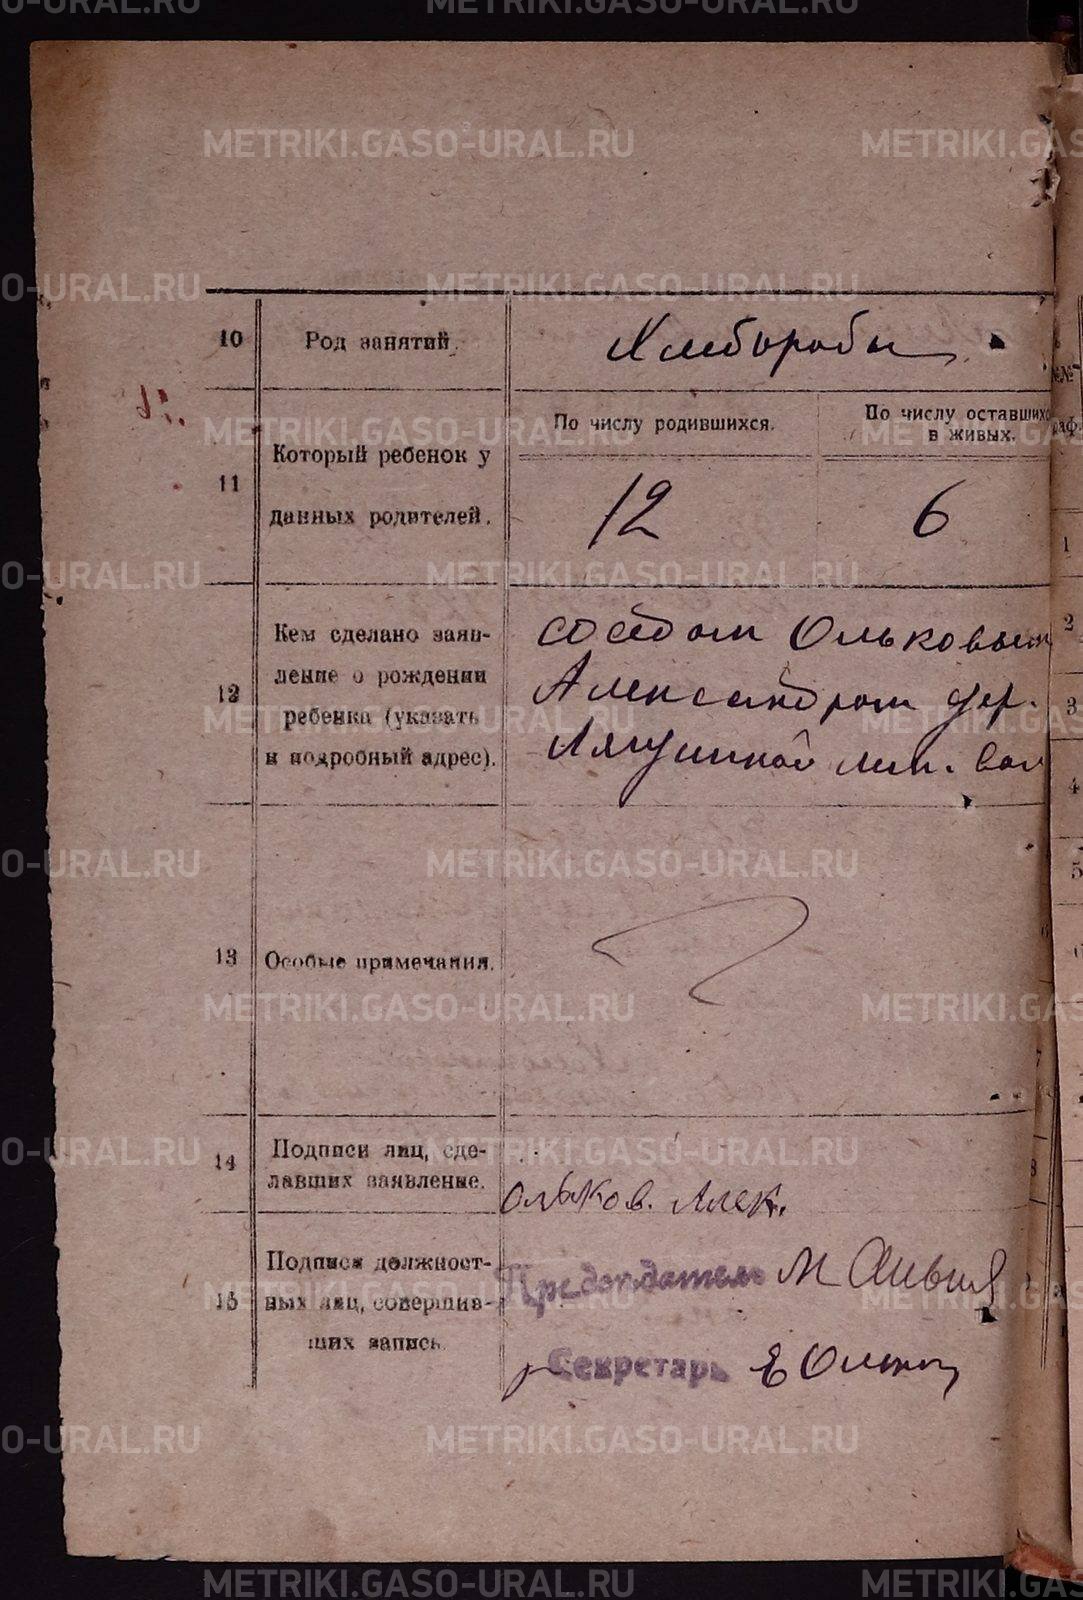 METRIKI.GASO-URAL.RU
10 Род занятий. Хлеборобы
11 Который ребенок у данных родителей.
По числу родившихся.
По числу оставшихс
в живых.
12
6
12 Кем сделано заяв-
ление о рождении
ребенка (указать
и подробный адрес).
соседом Ольковым
Александром дер.
Лягушиной лип. вол
13 Особые примечания.
14 Подписи лиц, сде-
лавших заявление.
Ольков. Алек.
15 Подписи должност-
ных лиц, совершив-
ших запись.
Председатель М
Секретарь Е Ольков